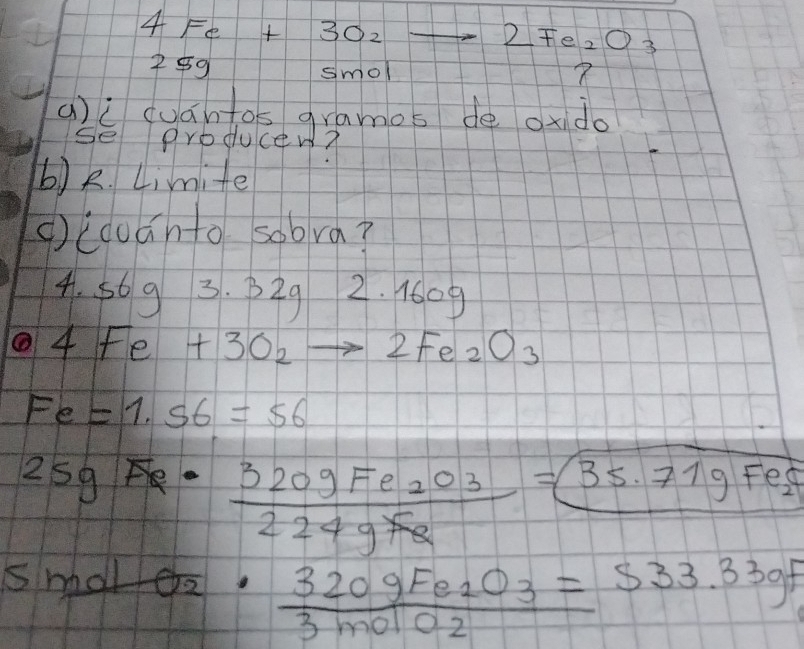 4 Fe + 3O₂ → 2 Fe₂O₃
25g 5mol ?
a) ¿cuántos gramos de oxido
se producen?
b) R. Limite
c) ¿cuánto sobra?
4.56g 3.32g 2.160g
4 Fe + 3O₂ → 2Fe₂O₃
Fe = 1.56 = 56
25g Fe · 320g Fe₂O₃ / 224g Fe = 35.71g Fe₂
5 mol O₂ · 320g Fe₂O₃ / 3 mol O₂ = 533.33g F